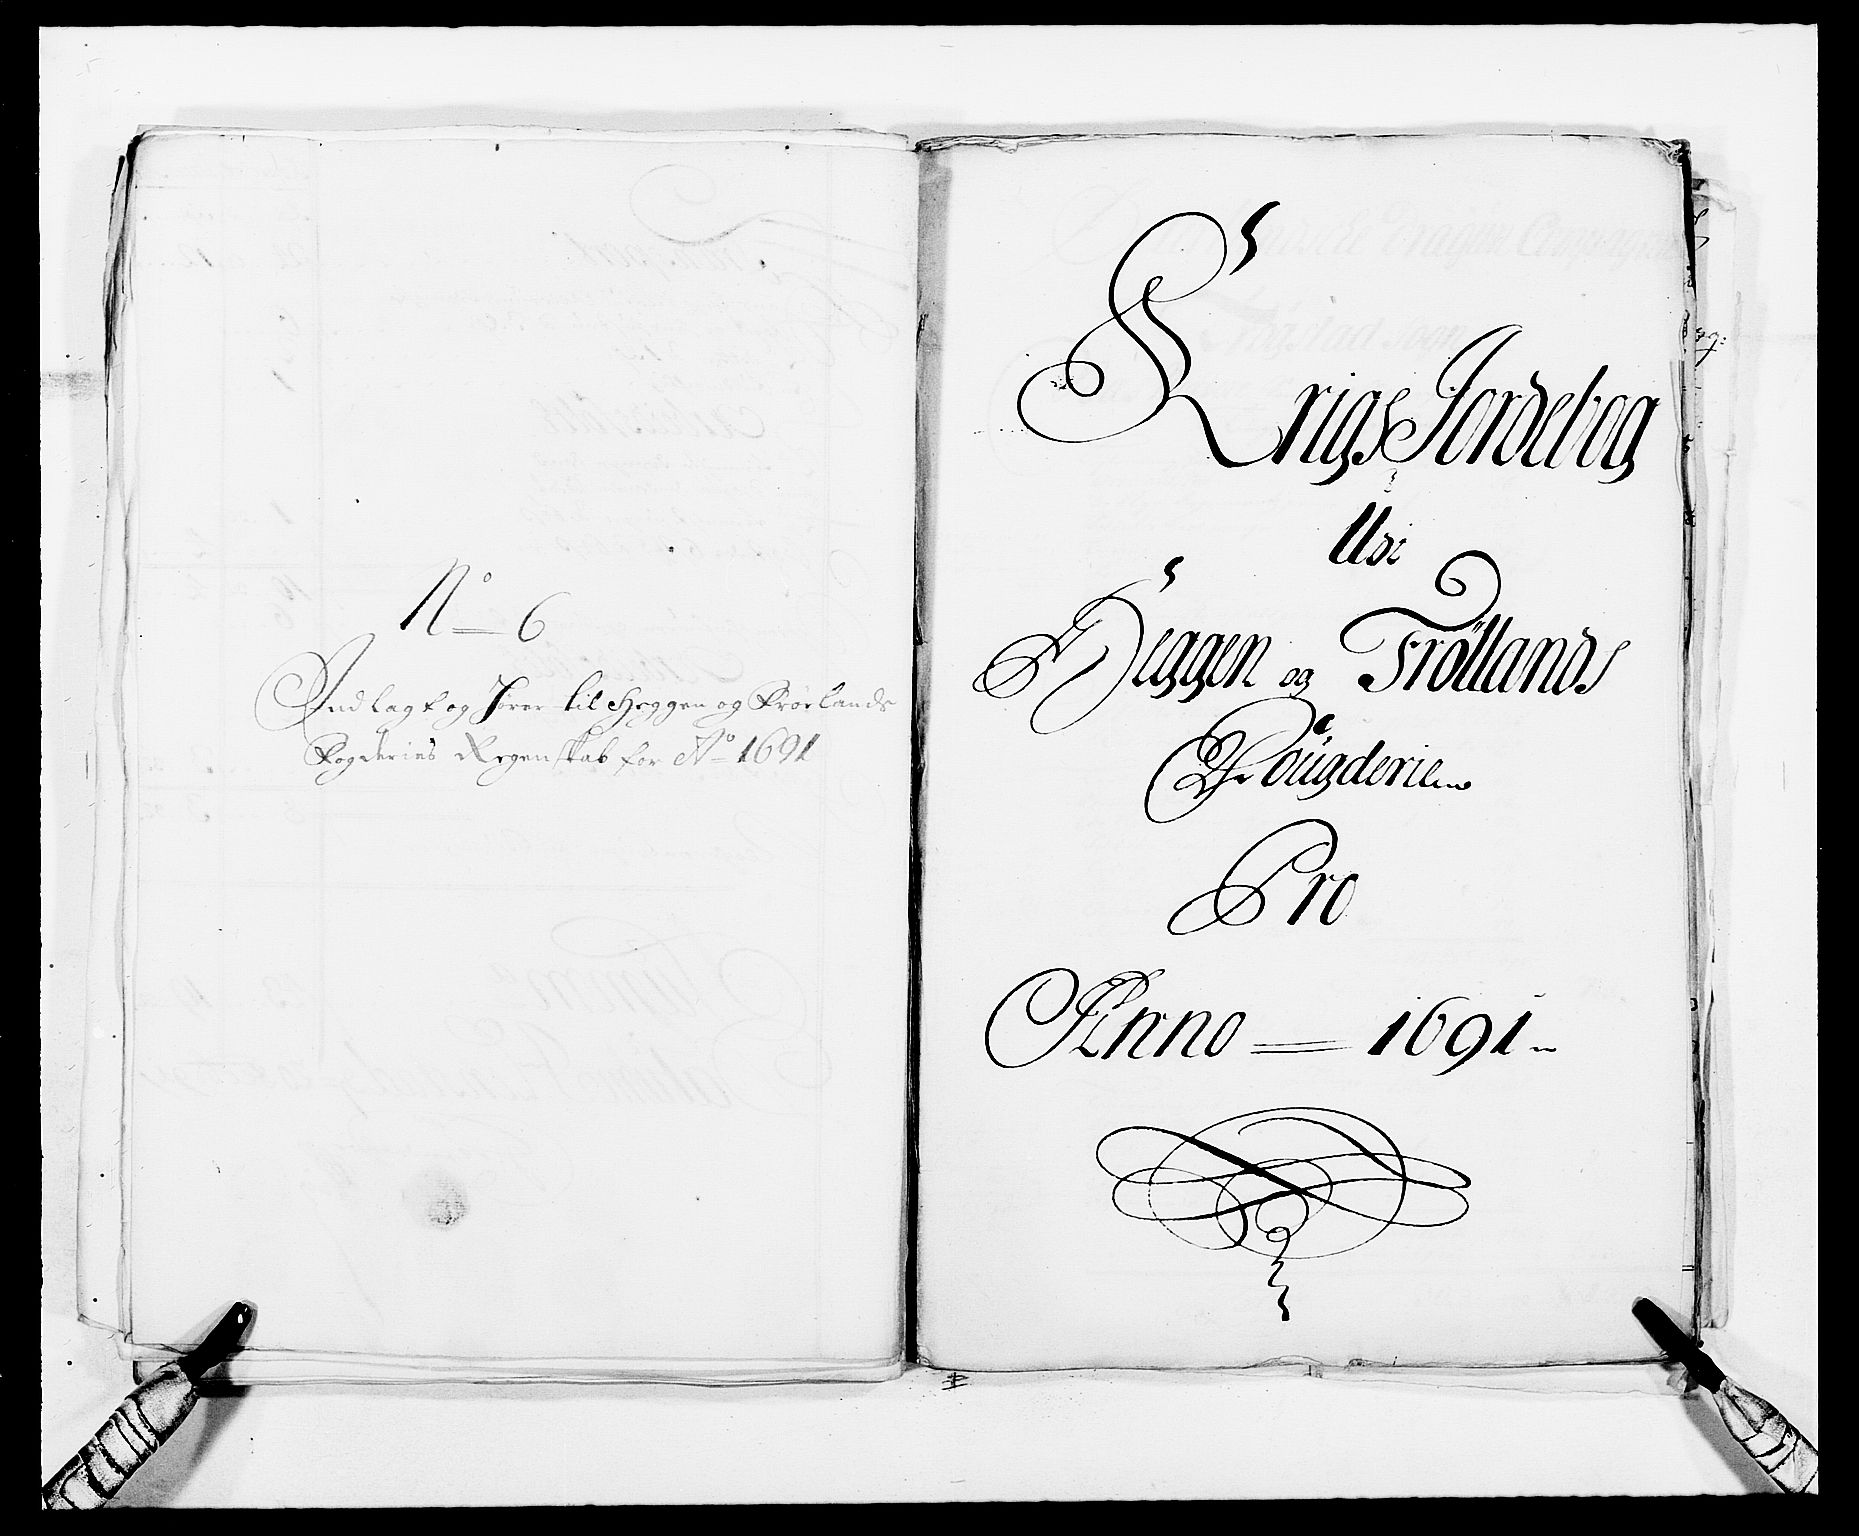 No 6
Indlagt og Hører til Heggen og Frørlands
Fogderies Regenskab for Ao 1691
Krigs Jordebog
Udi
Heggen og Fröllands
Fougderie
Pro
Anno = 1691